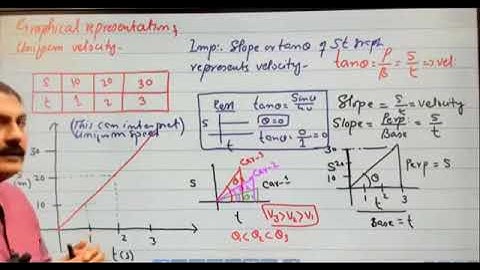 Graphical representation of
Uniform velocity-
S 10 20 30
t 1 2 3
(This can interpret
Uniqum speed)
30
20
10
(m)
1 2 3
t(s)
Imp:- Slope or tanθ of St graph
represents velocity-
tanθ = P/B = S/t => vel
S
t
θ=0
tanθ = 0/1 = 0
S
t
car-3
car-2
car-1
V3>V2>V1
θ1<θ2<θ3
Slope = S/t = velocity
Slope = Perp/Base = S/t
30
S 20
10
θ
1 2 3
t
Perp = S
Base = t